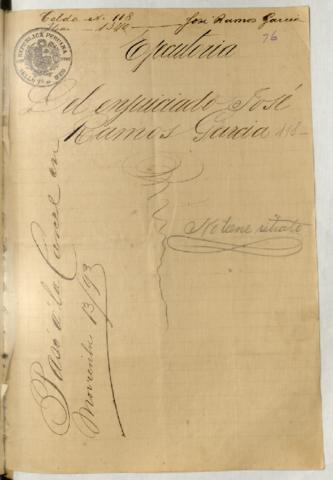 Celda Nº 118 José Ramos Garcia
76
REPUBLICA PERUANA
Ejecutoria
Del enjuiciado José
Ramos Garcia 118-
No tiene retrato
Pasó á la Carcel en
Noviembre 13/93